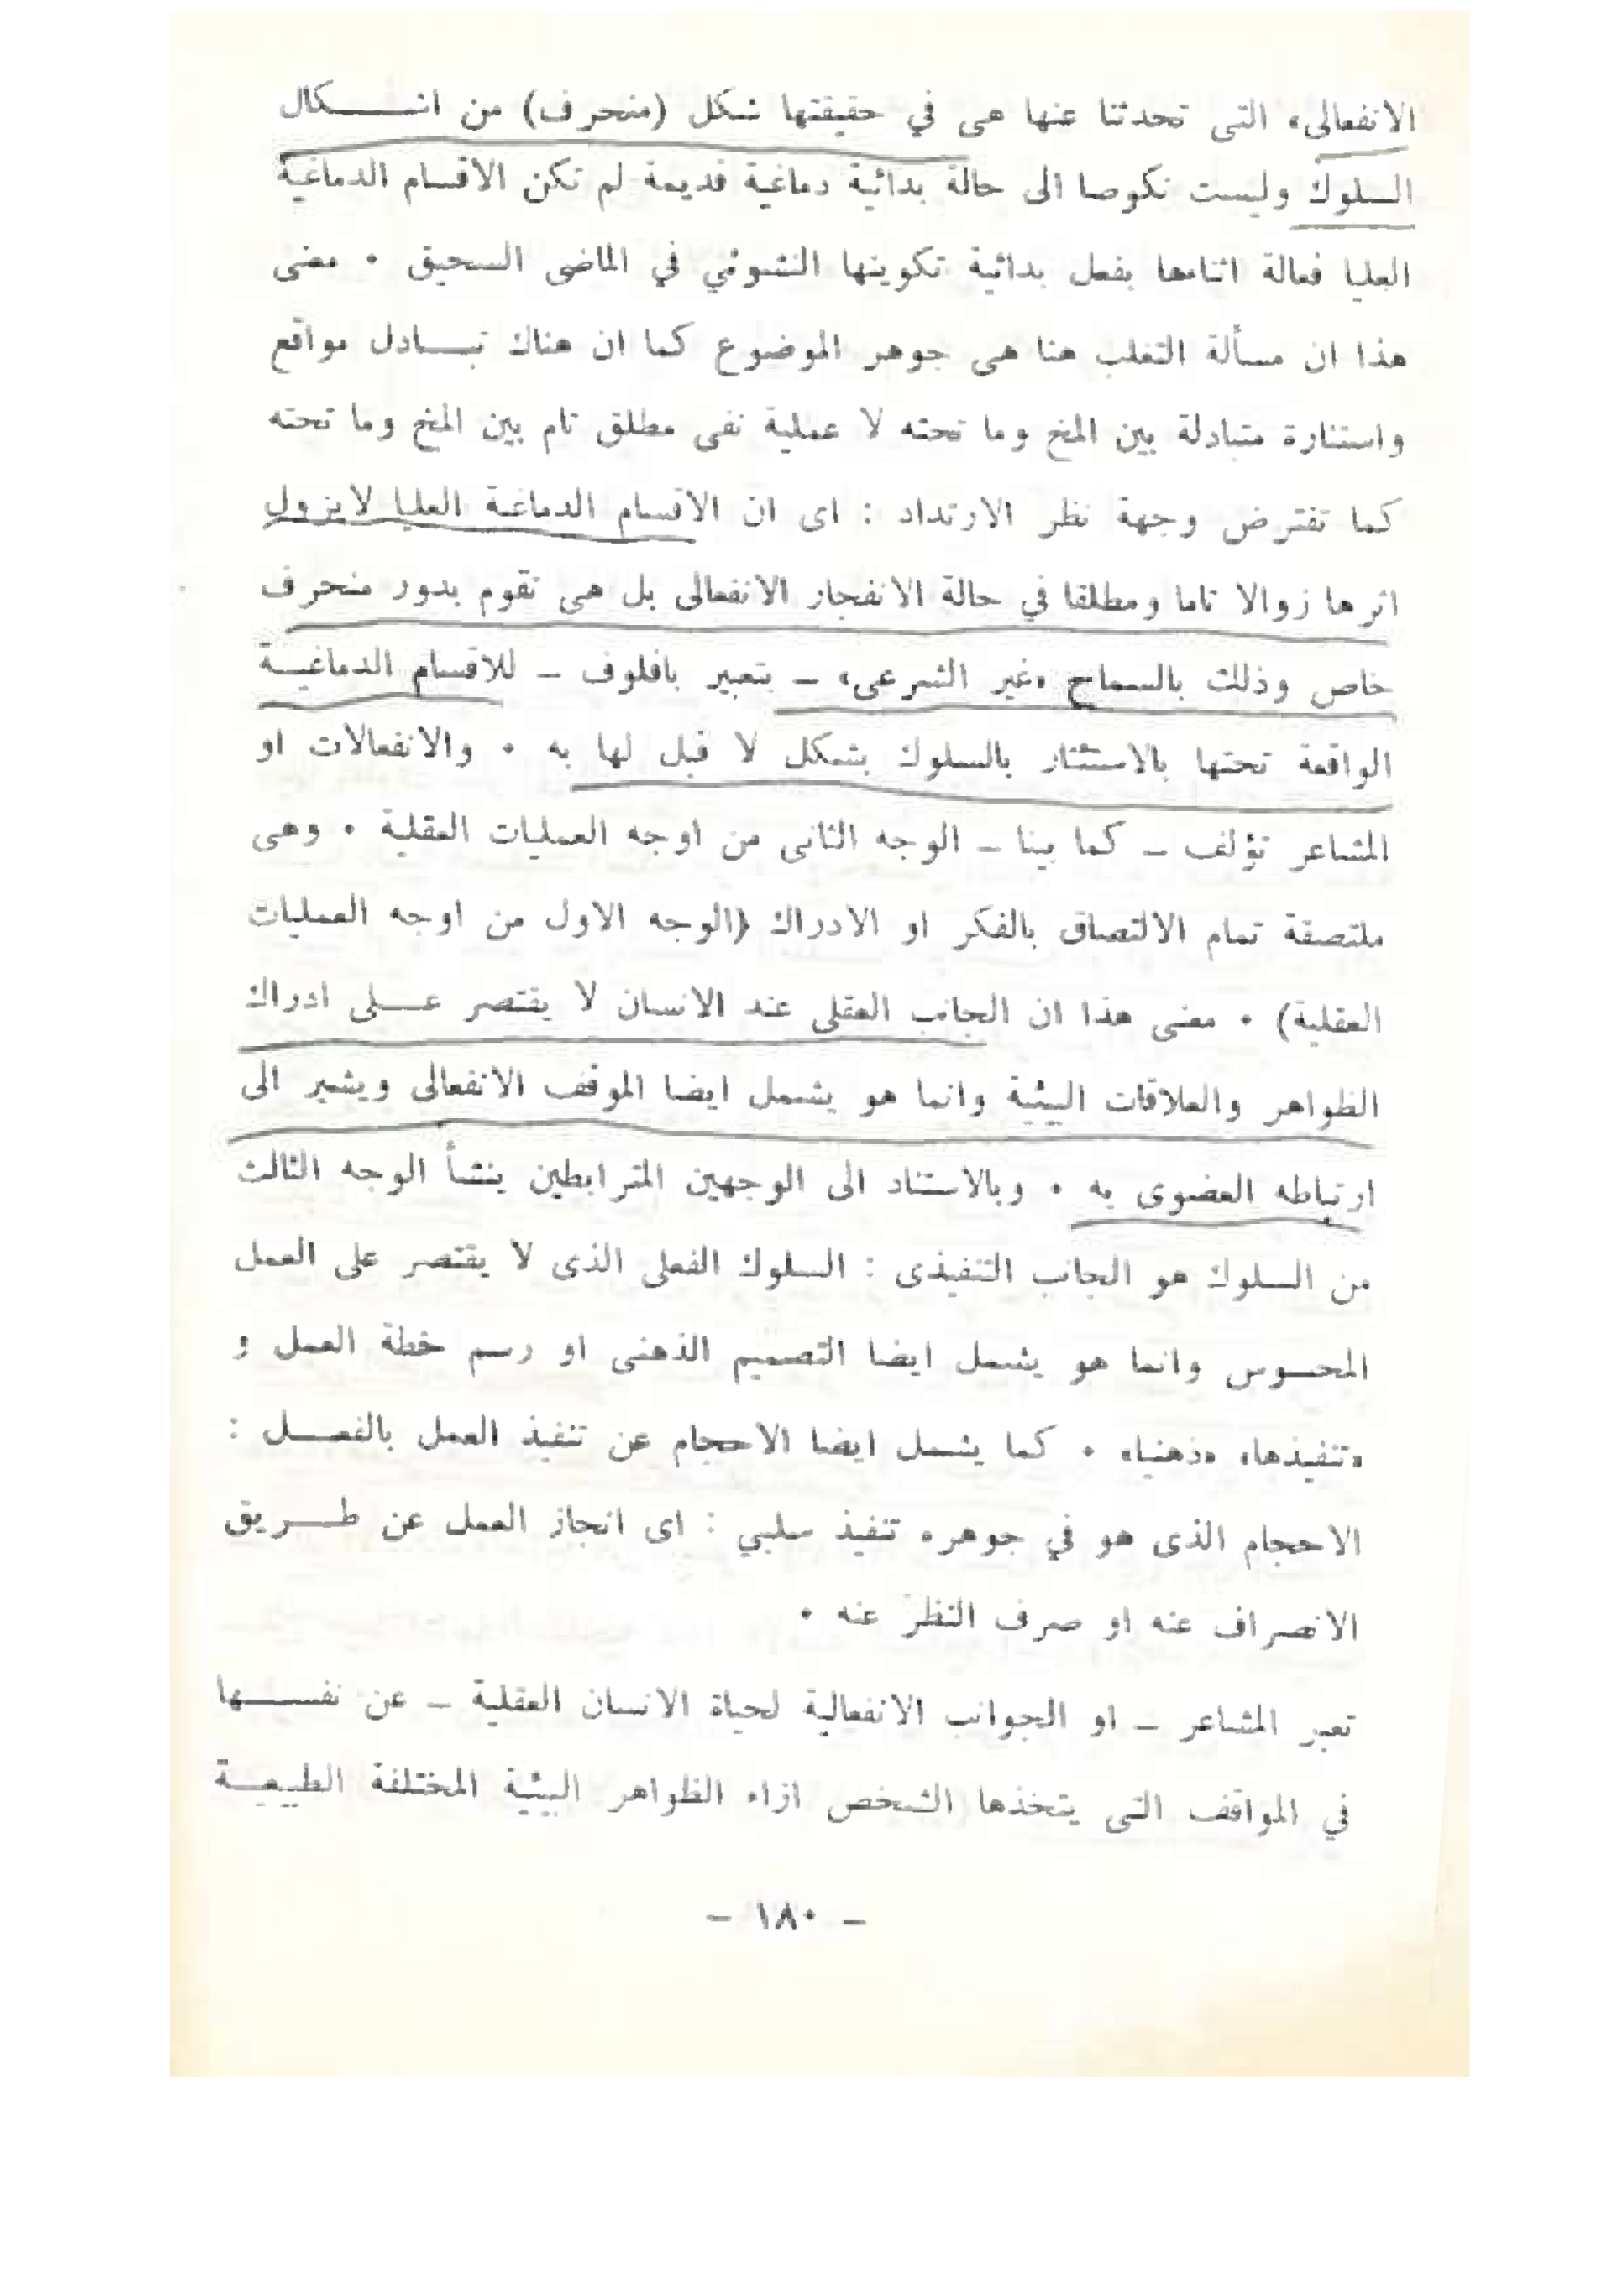 الانفعالى» التى تحدثنا عنها هى في حقيقتها شكل (منحرف) من اشـــكال
السلوك وليست نكوصا الى حالة بدائية دماغية قديمة لم تكن الاقسام الدماغية
العليا فعالة اثناءها بفعل بدائية تكوينها النشوئي في الماضى السحيق ٠ معنى
هذا ان مسألة التغلب هنا هى جوهر الموضوع كما ان هناك تبـــادل مواقع
واستثارة متبادلة بين المخ وما تحته لا عملية نفى مطلق تام بين المخ وما تحته
كما تفترض وجهة نظر الارتداد : اى ان الاقسام الدماغية العليا لايزول
اثرها زوالا تاما ومطلقا في حالة الانفجار الانفعالى بل هى تقوم بدور منحرف
خاص وذلك بالسماح «غير الشرعى» – بتعبير بافلوف – للاقسام الدماغيــة
الواقعة تحتها بالاستئثار بالسلوك بشكل لا قبل لها به ٠ والانفعالات او
المشاعر تؤلف – كما بينا – الوجه الثانى من اوجه العمليات العقلية ٠ وهى
ملتصقة تمام الالتصاق بالفكر او الادراك (الوجه الاول من اوجه العمليات
العقلية) ٠ معنى هذا ان الجانب العقلى عند الانسان لا يقتصر عــلى ادراك
الظواهر والعلاقات البيئية وانما هو يشمل ايضا الموقف الانفعالى ويشير الى
ارتباطه العضوى به ٠ وبالاستناد الى الوجهين المترابطين ينشأ الوجه الثالث
من السلوك هو الجانب التنفيذى : السلوك الفعلى الذى لا يقتصر على العمل
المحسوس وانما هو يشمل ايضا التصميم الذهنى او رسم خطة العمل و
«تنفيذها» «ذهنيا» ٠ كما يشمل ايضا الاحجام عن تنفيذ العمل بالفعــل :
الاحجام الذى هو في جوهره تنفيذ سلبي : اى انجاز العمل عن طـــريق
الانصراف عنه او صرف النظر عنه ٠
تعبر المشاعر – او الجوانب الانفعالية لحياة الانسان العقلية – عن نفســـها
في المواقف التى يتخذها الشخص ازاء الظواهر البيئية المختلفة الطبيعيــة
– ١٨٠ –